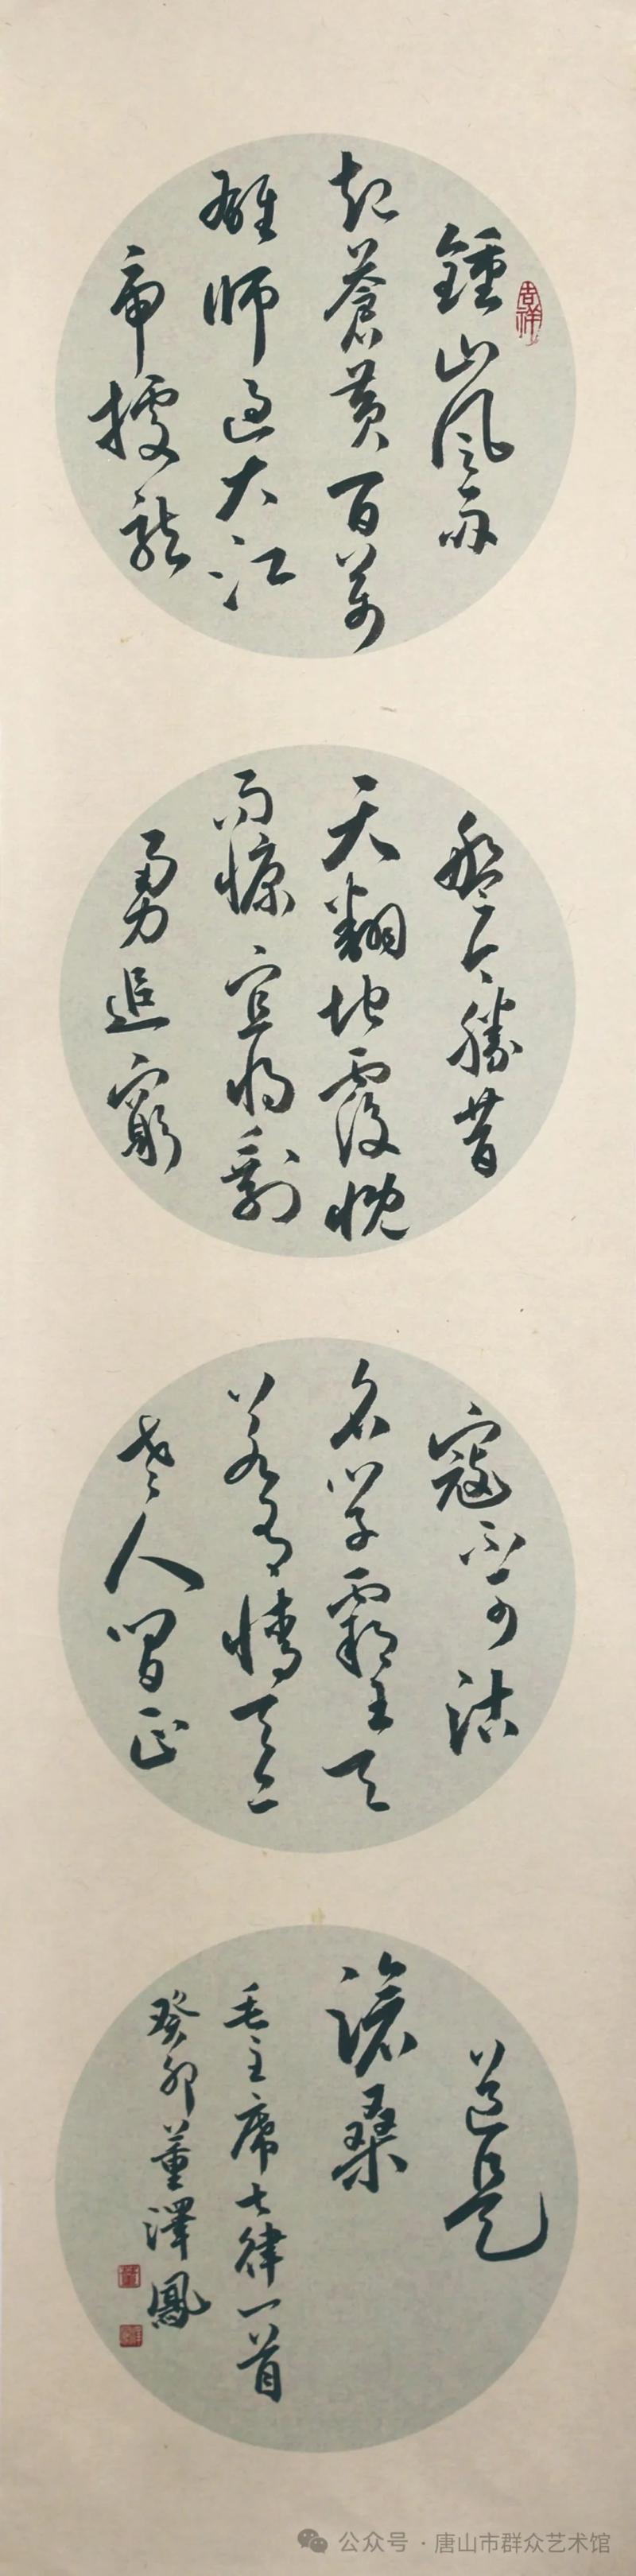 吉祥
鍾山风雨
起蒼黄百萬
雄師过大江
虎據龙
盤今勝昔
天翻地覆慨
而慷宜将剩
勇追窮
寇不可沽
名学霸王天
若有情天亦
老人间正
道是
滄桑
毛主席七律一首
癸卯董澤鳳
公众号·唐山市群众艺术馆